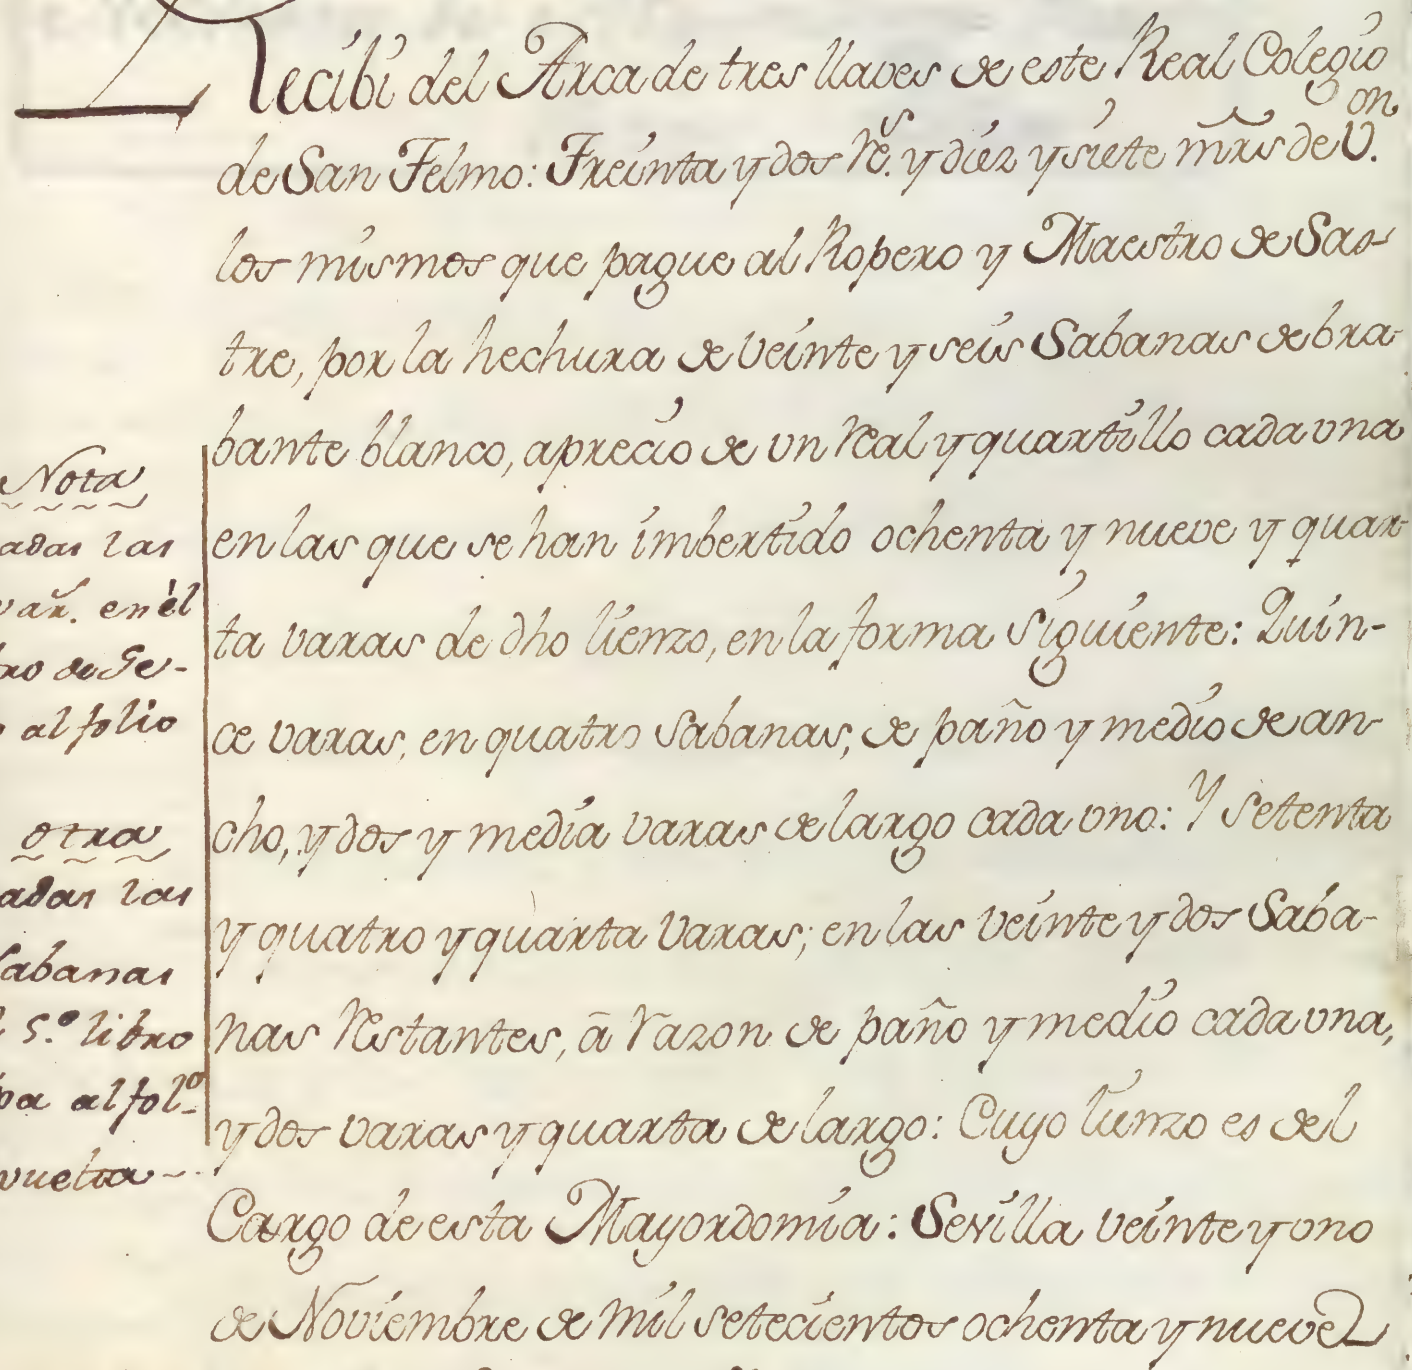 Recibi del Arca de tres llaves de este Real Colegio
de San Telmo: Treinta y dos rs. y diez y siete mrs de Von.
los mismos que pague al Ropero y Maestro de Sas-
tre, por la hechura de veinte y seis Sabanas de bra-
bante blanco, a precio de un real y quartillo cada una
en las que se han imbertido ochenta y nueve y quar-
ta varas de dho lienzo, en la forma siguiente: Quin-
ce varas, en quatro Sabanas, de paño y medio de an-
cho, y dos y media varas de largo cada uno: Y setenta
y quatro y quarta varas; en las veinte y dos Saba-
nas restantes, ā razon de paño y medio cada una,
y dos varas y quarta de largo: Cuyo lienzo es del
Cargo de esta Mayordomia: Sevilla veinte y uno
de Noviembre de mil setecientos ochenta y nueve
Nota
adas las
var. en èl
ro de Ge-
al folio
otra
adas las
Sabanas
5.º libro
pa al fol.º
vuelta